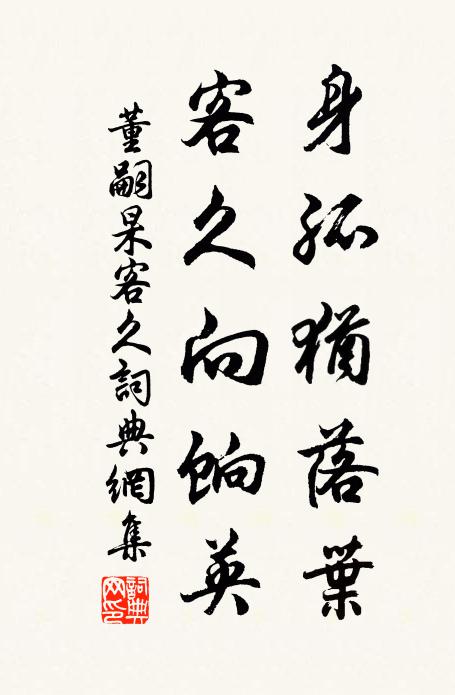 身孤猶落葉
客久向餉英
董嗣杲客久詞典網集
詞典网印